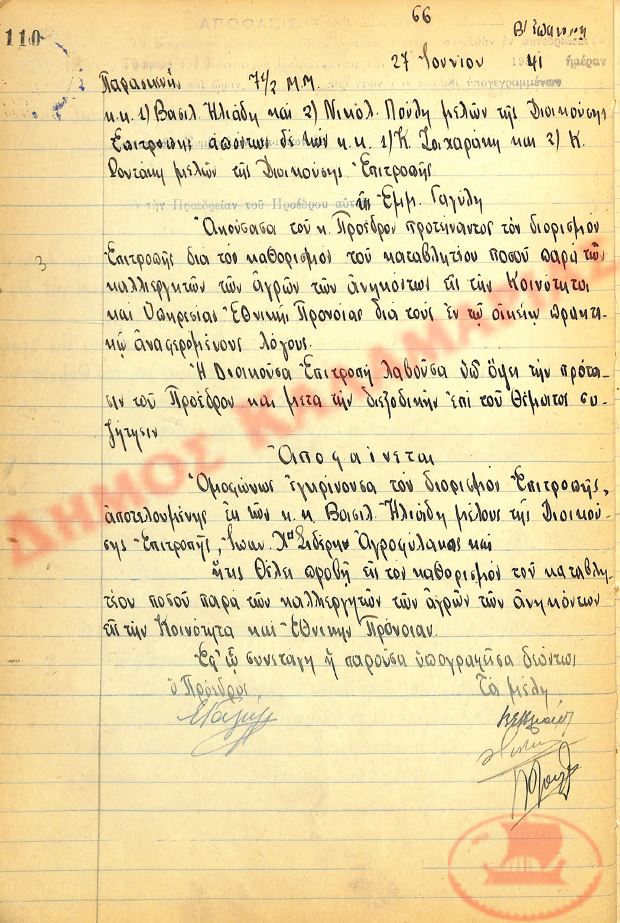 66
110
27 Ιουνίου 41 ημέραν
Παρασκευήν 7 1/2 Μ.Μ. υπογεγραμμένων
κ.κ. 1) Βασιλ. Ηλιάδη καί 2) Νικόλ. Πούλη μελών της Διοικούσης
Επιτροπής απόντων δέ των κ.κ. 1) Κ. Ζαχαράκη και 2) Κ.
μελών της Διοικούσης Επιτροπής
τήν Προεδρείαν τοῦ Προέδρου αὐτῆς Ἐμμ. Γαγύλη
Ἀκούσασα τοῦ κ. Προέδρου προτείναντος τόν διορισμόν
3
Ἐπιτροπῆς διά τόν καθορισμόν τοῦ καταβλητέου ποσοῦ παρά τῶν
καλλιεργητῶν τῶν ἀγρῶν τῶν ἀνηκόντων εἰς τήν Κοινότητα
καί Ὑπηρεσίας Ἐθνικῆς Προνοίας διά τούς ἐν τῷ οἰκείῳ πρακτι-
κῷ ἀναφερομένους λόγους.
Ἡ Διοικοῦσα Ἐπιτροπή λαβοῦσα ὑπ' ὄψει τήν πρότα-
σιν τοῦ Προέδρου καί μετά τήν διεξοδικήν ἐπί τοῦ θέματος συ-
ζήτησιν
Ἀποφαίνεται
Ὁμοφώνως ἐγκρίνουσα τόν διορισμόν Ἐπιτροπῆς,
ἀποτελουμένης ἐκ τῶν κ.κ. Βασιλ. Ἡλιάδη μέλους τῆς Διοικού-
σης Ἐπιτροπῆς, Ἰωαν. Χ" Σιδέρη Ἀγροφύλακος καί
ἥτις θέλει προβῆ εἰς τόν καθορισμόν τοῦ καταβλη-
τέου ποσοῦ παρά τῶν καλλιεργητῶν τῶν ἀγρῶν τῶν ἀνηκόντων
εἰς τήν Κοινότητα καί Ἐθνικήν Πρόνοιαν.
Ἐφ' ᾧ συνετάγη ἡ παροῦσα ὑπογραφεῖσα δεόντως
ὁ Πρόεδρος Τά μέλη
ΔΗΜΟΣ ΚΑΛΑΜΑΡΙΑΣ